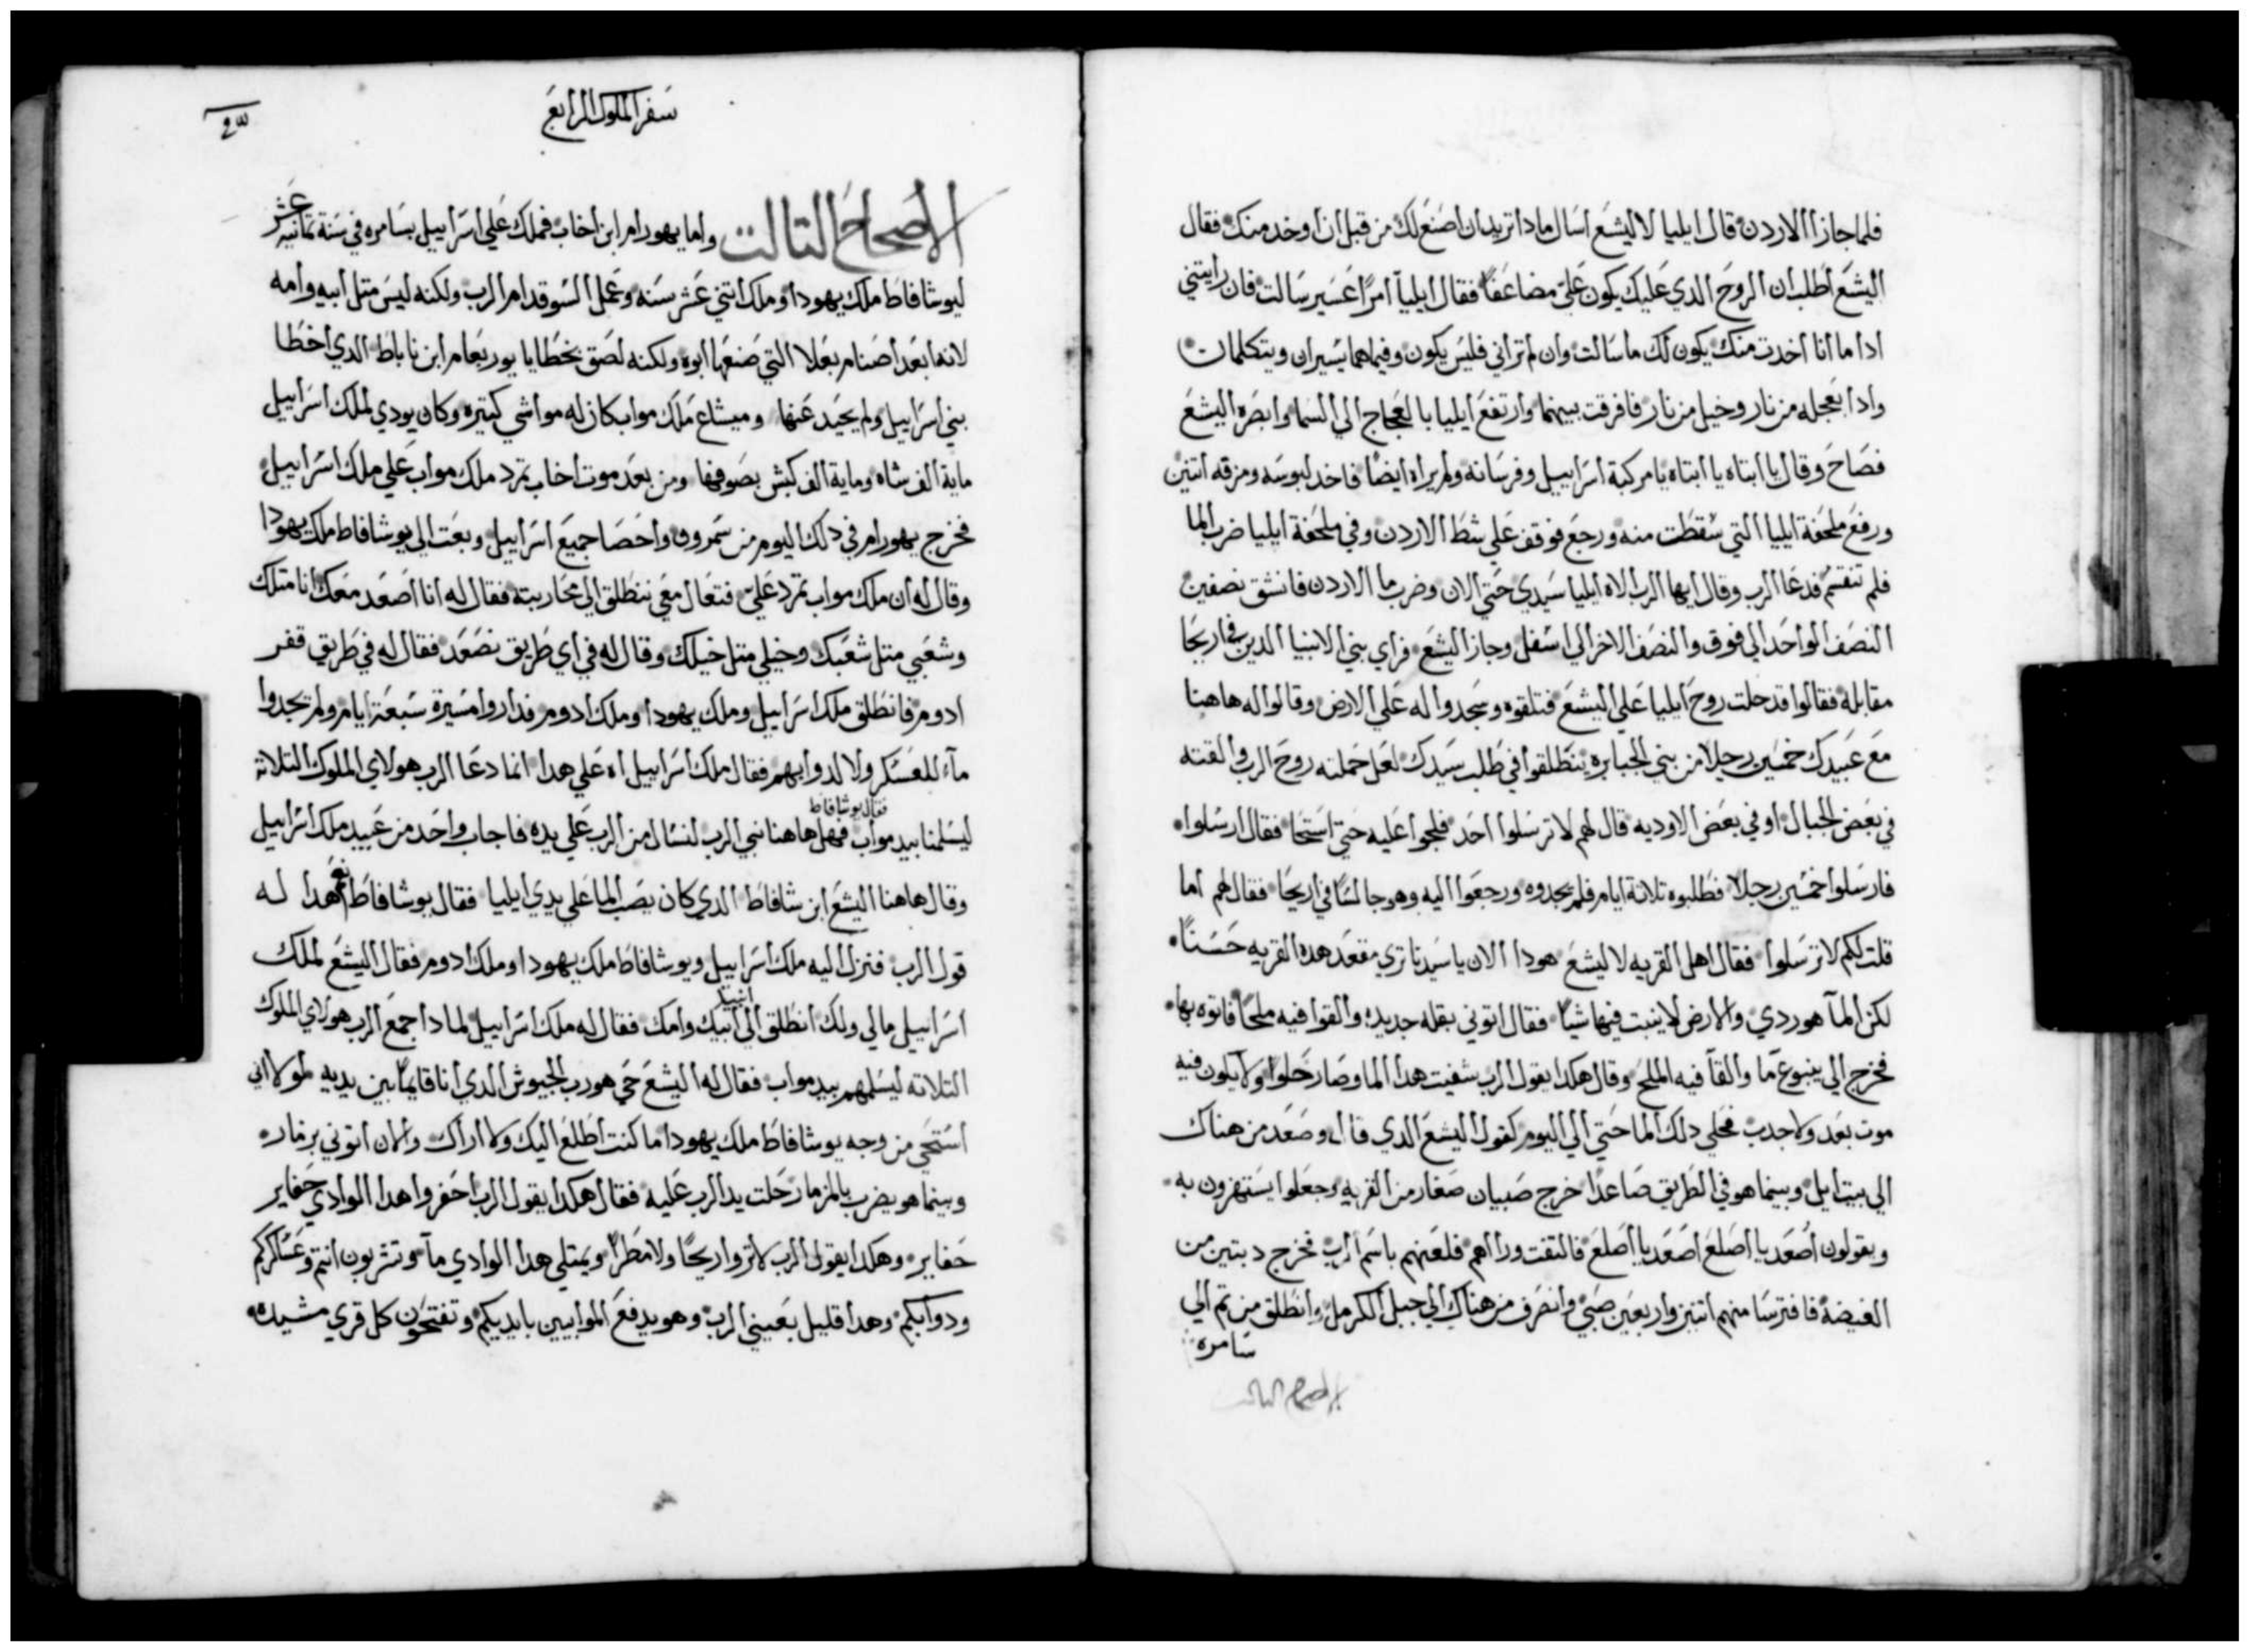 فلما جازا الاردن قال ايليا لاليشع اسال ماداتريد ان اصنع لك من قبل ان اوخد منك فقال
اليشع اطلب ان الروح الدي عليك يكون علي مضاعفا فقال ايليا امرًا عسير سالت فان رايتني
ادا ما انا اخدت منك يكون لك ما سالت وان لم تراني فليس يكون وفيما هما يسيران ويتكلمان
وادا بعجله من نار وخيل من نار فافرقت بينهما وارتفع ايليا بالعجاج الي السما وابصره اليشع
فصاح وقال يا ابتاه يا ابتاه يا مركبة اسراييل وفرسانه ولم يراه ايضًا فاخد لبوسه ومزقه اتنين
ورفع ملحفة ايليا التي سقطت منه ورجع فوقف علي شط الاردن وفي ملحفة ايليا ضرب الما
فلم تنقسم فدعا الرب وقال ايها الرب الاه ايليا سيدي حتي الان وضرب ما الاردن فانشق نصفين
النصف الواحد الي فوق والنصف الاخر الي اسفل وجاز اليشع فراي بني الانبيا الدين في اريحا
مقابله فقالوا قد حلت روح ايليا علي اليشع فتلقوه وسجدوا له علي الارض وقالوا له هاهنا
مع عبيدك خمسين رجلا من بني الجبابره ينطلقوا في طلب سيدك لعل حملته روح الرب والقته
في بعض الجبال او في بعض الاوديه قال لهم لا ترسلوا احد فلجوا عليه حتي استحا فقال ارسلوا
فارسلوا خمسين رجلا فطلبوه تلاتة ايام فلم يجدوه ورجعوا اليه وهو جالسًا في اريحا فقال لهم اما
قلت لكم لا ترسلوا فقال اهل القريه لاليشع هودا الان يا سيدنا تري مقعد هده القريه حسنًا
لكن المآ هوردي والارض لا ينبت فيها شيًا فقال اتوني بقله جديده والقوا فيه ملحًا فاتوه بها
فخرج الي ينبوع مآ والقا فيه الملح وقال هكدا يقول الرب شفيت هدا الما وصار حلوا ولا يكون فيه
موت بعد ولا جدب فحلي دلك الما حتي الي اليوم كقول اليشع الدي قال وصعد من هناك
الي بيت ايل وبينما هو في الطريق صاعدًا خرج صبيان صغار من القريه وجعلوا يستهزون به
ويقولون اصعد يا اصلع اصعد يا اصلع فالتفت وراهم فلعنهم باسم الرب فخرج دبتين من
الغيضة فافترسا منهم اتنين واربعين صبي وانصرف من هناك الي جبل الكرمل وانطلق من تم الي
سامره
الاصحاح التالت
سفر الملوك الرابع
الاصحاح التالت واما يهورام ابن اخاب فملك علي اسراييل بسامره في سنة تمانية عشر
ليوشافاط ملك يهودا وملك اتني عشر سنه وعمل السو قدام الرب ولكنه ليس متل ابيه وامه
لانه ابعد اصنام بعلا التي صنعها ابوه ولكنه لصق بخطايا يوربعام ابن ناباط الدي اخطا
بني اسراييل ولم يحيد عنها وميشاع ملك مواب كان له مواشي كتيره وكان يودي لملك اسراييل
ماية الف شاه وماية الف كبش بصوفها ومن بعد موت اخاب تمرد ملك مواب علي ملك اسراييل
فخرج يهورام في دلك اليوم من سمرون واحصا جميع اسراييل وبعت الي يوشافاط ملك يهودا
وقال له ان ملك مواب تمرد علي فتعال معي ننطلق الي محاربته فقال له انا اصعد معك انا متلك
وشعبي متل شعبك وخيلي متل خيلك وقال له في اي طريق نصعد فقال له في طريق قفر
ادوم فانطلق ملك اسراييل وملك يهودا وملك ادوم فداروا مسيرة سبعة ايام ولم يجدوا
مآء للعسكر ولا لدوابهم فقال ملك اسراييل اه علي هدا انما دعا الرب هولاي الملوك التلاته
فقال يوشافاط
ليسلمنا بيد مواب فهل هاهنا نبي الرب لنسال من الرب علي يده فاجاب واحد من عبيد ملك اسراييل
وقال هاهنا اليشع ابن شافاط الدي كان يصب الما علي يدي ايليا فقال يوشافاط نعم هدا له
قول الرب فنزل اليه ملك اسراييل ويوشافاط ملك يهودا وملك ادوم فقال اليشع لملك
اسراييل مالي ولك انطلق الي انبيا ابيك وامك فقال له ملك اسراييل لمادا جمع الرب هولاي الملوك
التلاته ليسلمهم بيد مواب فقال له اليشع حي هو رب الجيوش الدي انا قايمًا بين يديه لولا اني
استحي من وجه يوشافاط ملك يهودا ما كنت اطلع اليك ولا اراك والان اتوني بزمار
وبينما هو يضرب بالمزمار حلت يد الرب عليه فقال هكدا يقول الرب احفروا هدا الوادي حفاير
حفاير وهكدا يقول الرب لا تروا ريحًا ولا مطرًا ويمتلي هدا الوادي مآء وتشربون انتم وعساكركم
ودوابكم وهدا قليل بعيني الرب وهو يدفع الموابيين بايديكم وتفتحون كل قري مشيده